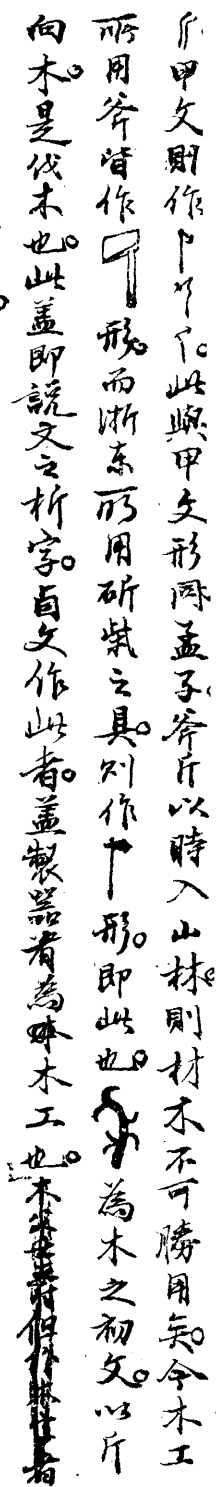 斤甲文則作此與甲文形同孟子斧斤以時入山林則材木不可勝用矣今木工
所用斧皆作形而浙東所用斫柴之具則作形即此也為木之初文以斤
向木是伐木也此蓋即說文之析字卣文作此者蓋製器者為木工也